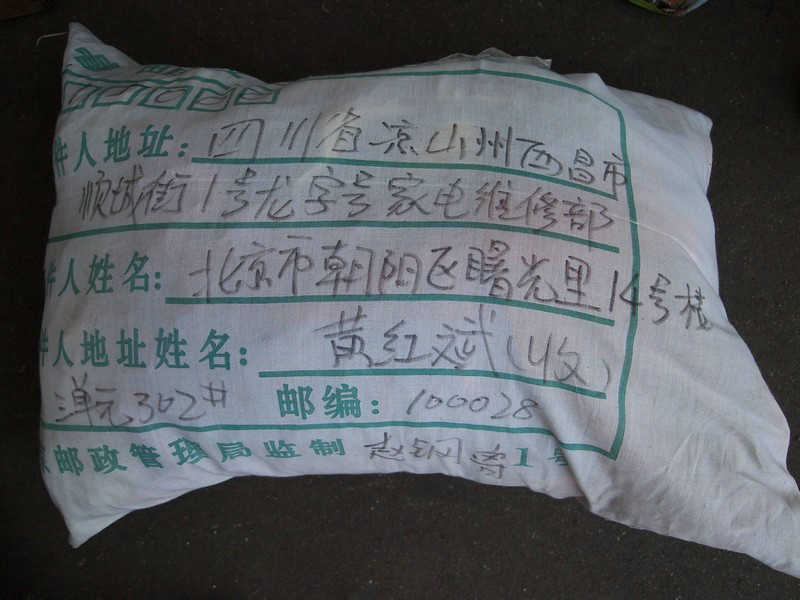 件人地址：四川省凉山州西昌市
顺城街1号龙字号家电维修部
件人姓名：北京市朝阳区曙光里14号楼
件人地址姓名：黄红斌(收)
三单元302# 邮编：100028
邮政管理局监制 赵钢 1号